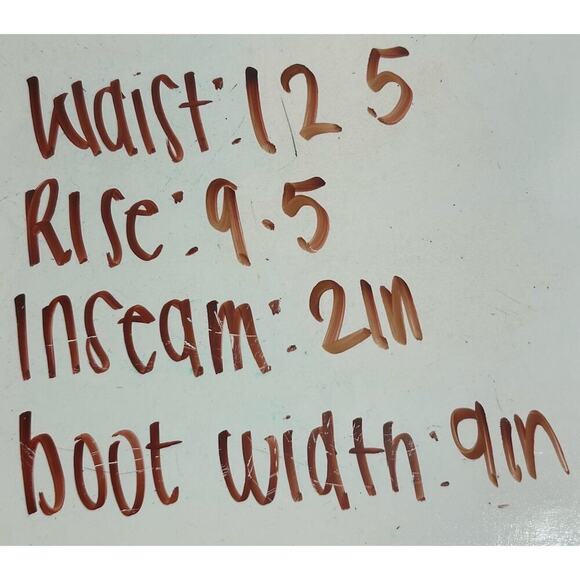 Waist: 12 5
Rise: 9.5
Inseam: 2in
boot width: 9in